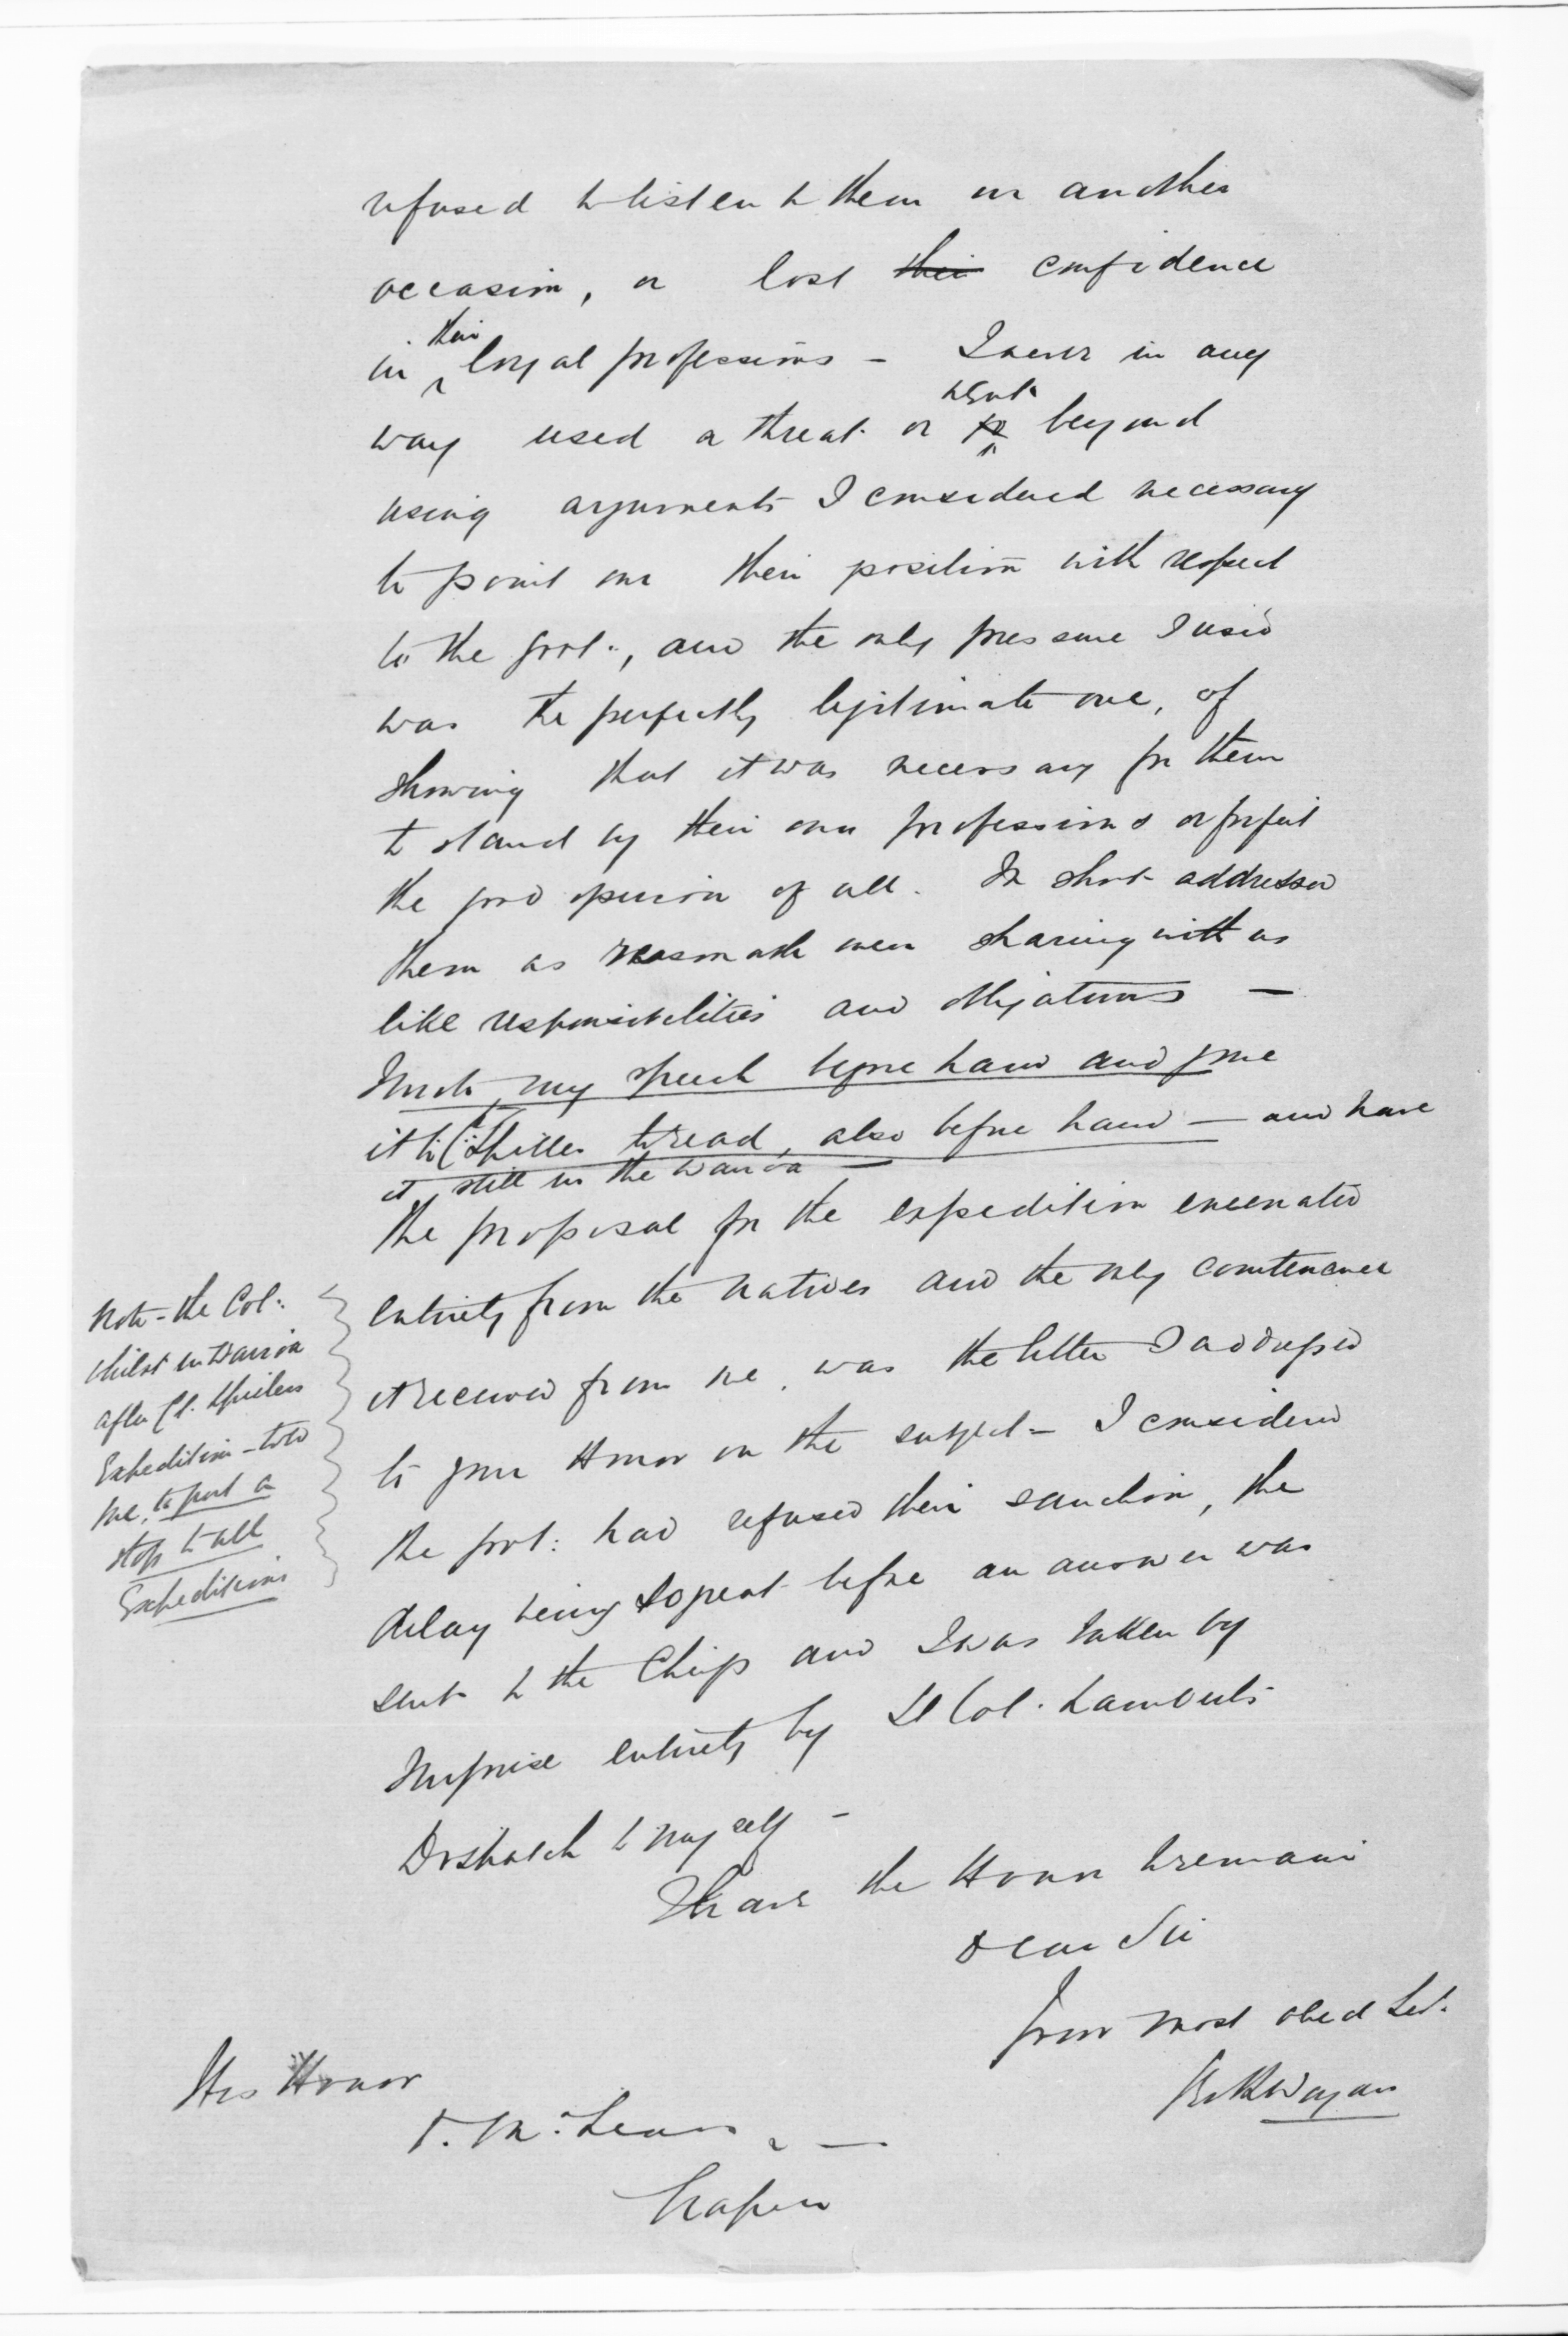 refused to listen to them on another
occasion, or lost their confidence
in their loyal professions — I never in any
way used a threat or went beyond
using arguments I considered necessary
to point out their position with respect
to the Govt., and the only pressure I used
was the perfectly legitimate one, of
showing that it was necessary for them
to stand by their own professions or forfeit
the good opinion of all. In short addressed
them as reasonable men sharing with us
like responsibilities and obligations —
I wrote my speech before hand and gave
it to Ct. Spiller to read, also before hand — and have
it still in the Wairoa —
The proposal for the expedition emenated
entirely from the Natives and the only countenance
it received from me, was the letter I addressed
to your Honor on the subject — I considered
the Govt: had refused their sanction, the
delay being so great before an answer was
sent to the Chiefs and I was taken by
surprise entirely by Lt Col. Lamberts
Dispatch to myself —
I have the Honor to remain
Dear Sir
Your most obed Svt.
Note — the Col:
whilst in Wairoa
after Ct. Spillers
Expedition — told
me, to put a
stop to all
Expeditions
His Honor
D. McLean
Napier